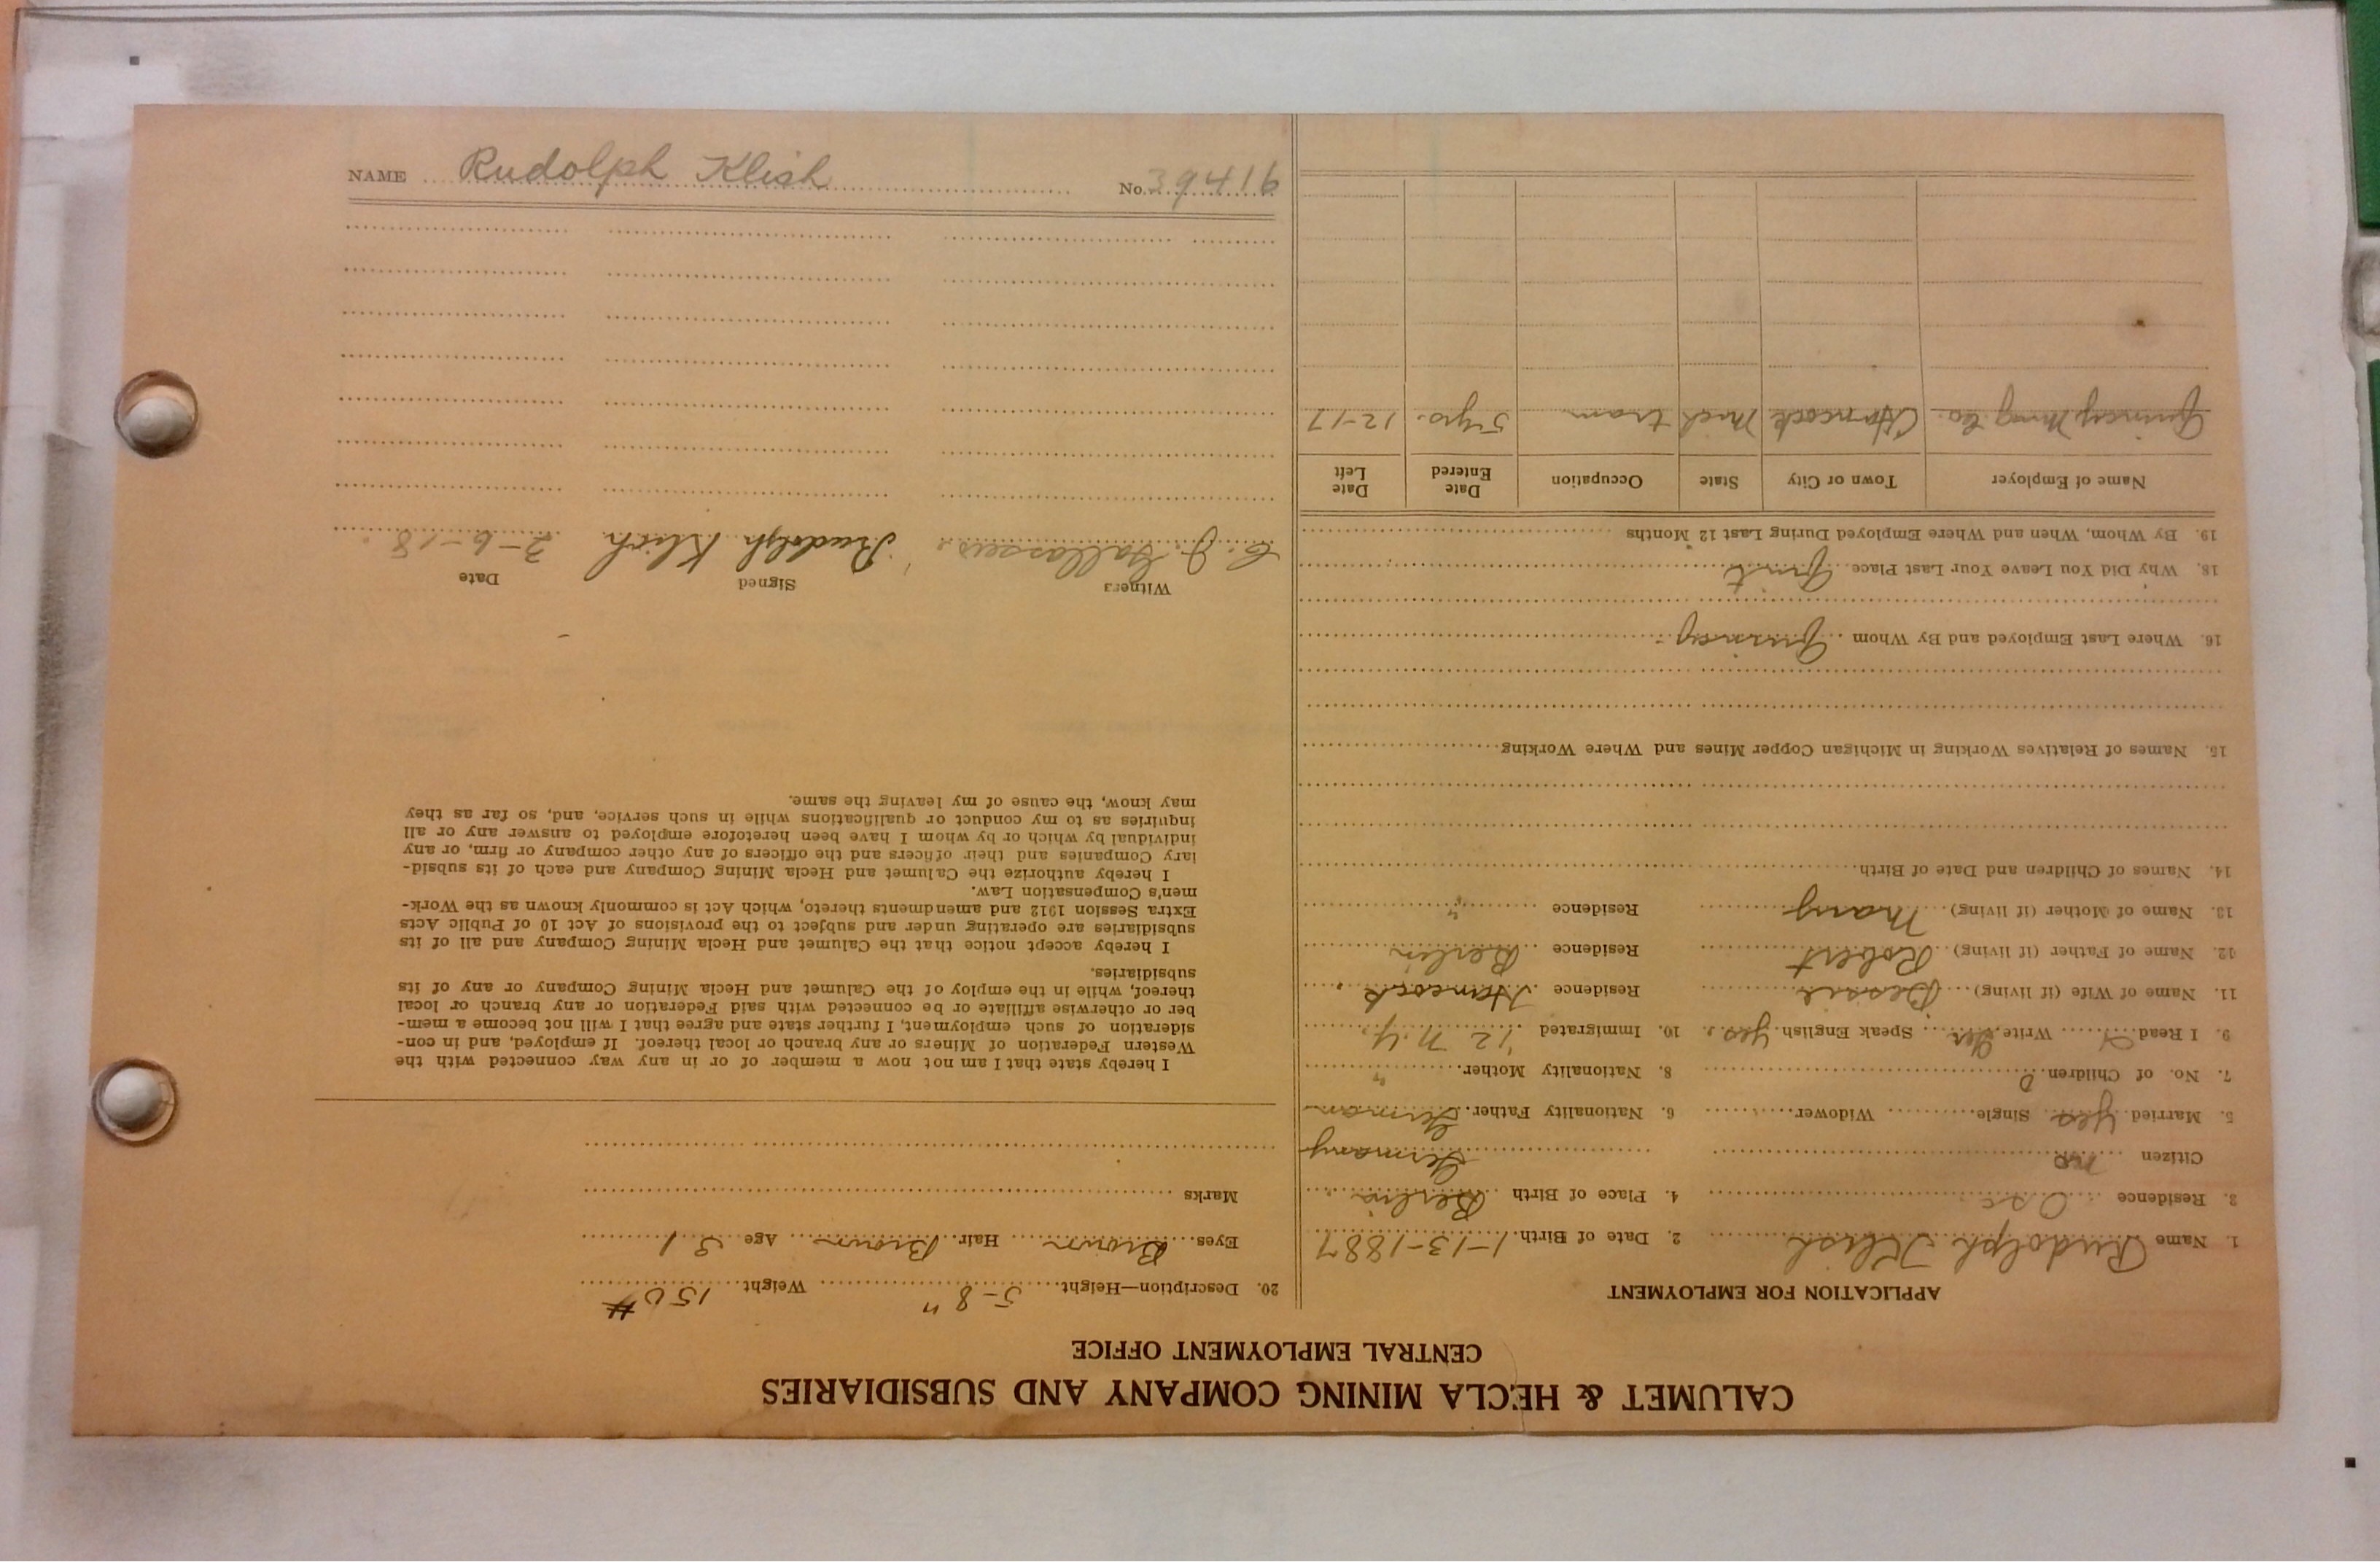 CALUMET & HECLA MINING COMPANY AND SUBSIDIARIES
CENTRAL EMPLOYMENT OFFICE
APPLICATION FOR EMPLOYMENT
1. Name Rudolph Klish 2. Date of Birth 1-13-1887
3. Residence Osc 4. Place of Birth Berlin
Citizen no Germany
5. Married Yes Single Widower 6. Nationality Father German
7. No. of Children 0 8. Nationality Mother "
9. I Read Write Ger Speak English Yes. 10. Immigrated '12 N.Y.
11. Name of Wife (if living) Bessie Residence Hancock
12. Name of Father (if living) Robert Residence Berlin
13. Name of Mother (if living) Mary Residence "
14. Names of Children and Date of Birth
15. Names of Relatives Working in Michigan Copper Mines and Where Working
16. Where Last Employed and By Whom Quincy
18. Why Did You Leave Your Last Place Quit
19. By Whom, When and Where Employed During Last 12 Months
Name of Employer Town or City State Occupation Date Entered Date Left
Quincy Mng Co. Hancock Mich tram 5 yrs. 12-17
20. Description—Height 5-8" Weight 150 #
Eyes Brown Hair Brown Age 31
Marks
I hereby state that I am not now a member of or in any way connected with the
Western Federation of Miners or any branch or local thereof. If employed, and in con-
sideration of such employment, I further state and agree that I will not become a mem-
ber or otherwise affiliate or be connected with said Federation or any branch or local
thereof, while in the employ of the Calumet and Hecla Mining Company or any of its
subsidiaries.
I hereby accept notice that the Calumet and Hecla Mining Company and all of its
subsidiaries are operating under and subject to the provisions of Act 10 of Public Acts
Extra Session 1912 and amendments thereto, which Act is commonly known as the Work-
men's Compensation Law.
I hereby authorize the Calumet and Hecla Mining Company and each of its subsid-
iary Companies and their officers and the officers of any other company or firm, or any
individual by which or by whom I have been heretofore employed to answer any or all
inquiries as to my conduct or qualifications while in such service, and, so far as they
may know, the cause of my leaving the same.
Witness Signed Date
C. J. Rudolph Klish 2-6-18.
NAME Rudolph Klish No. 39416